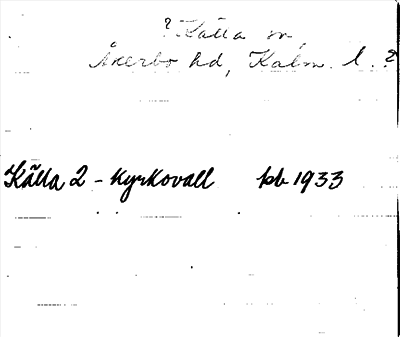 ? Källa sn,
Åkerbo hd, Kalm. l. ?
Källa 2 - Kyrkovall kb 1933